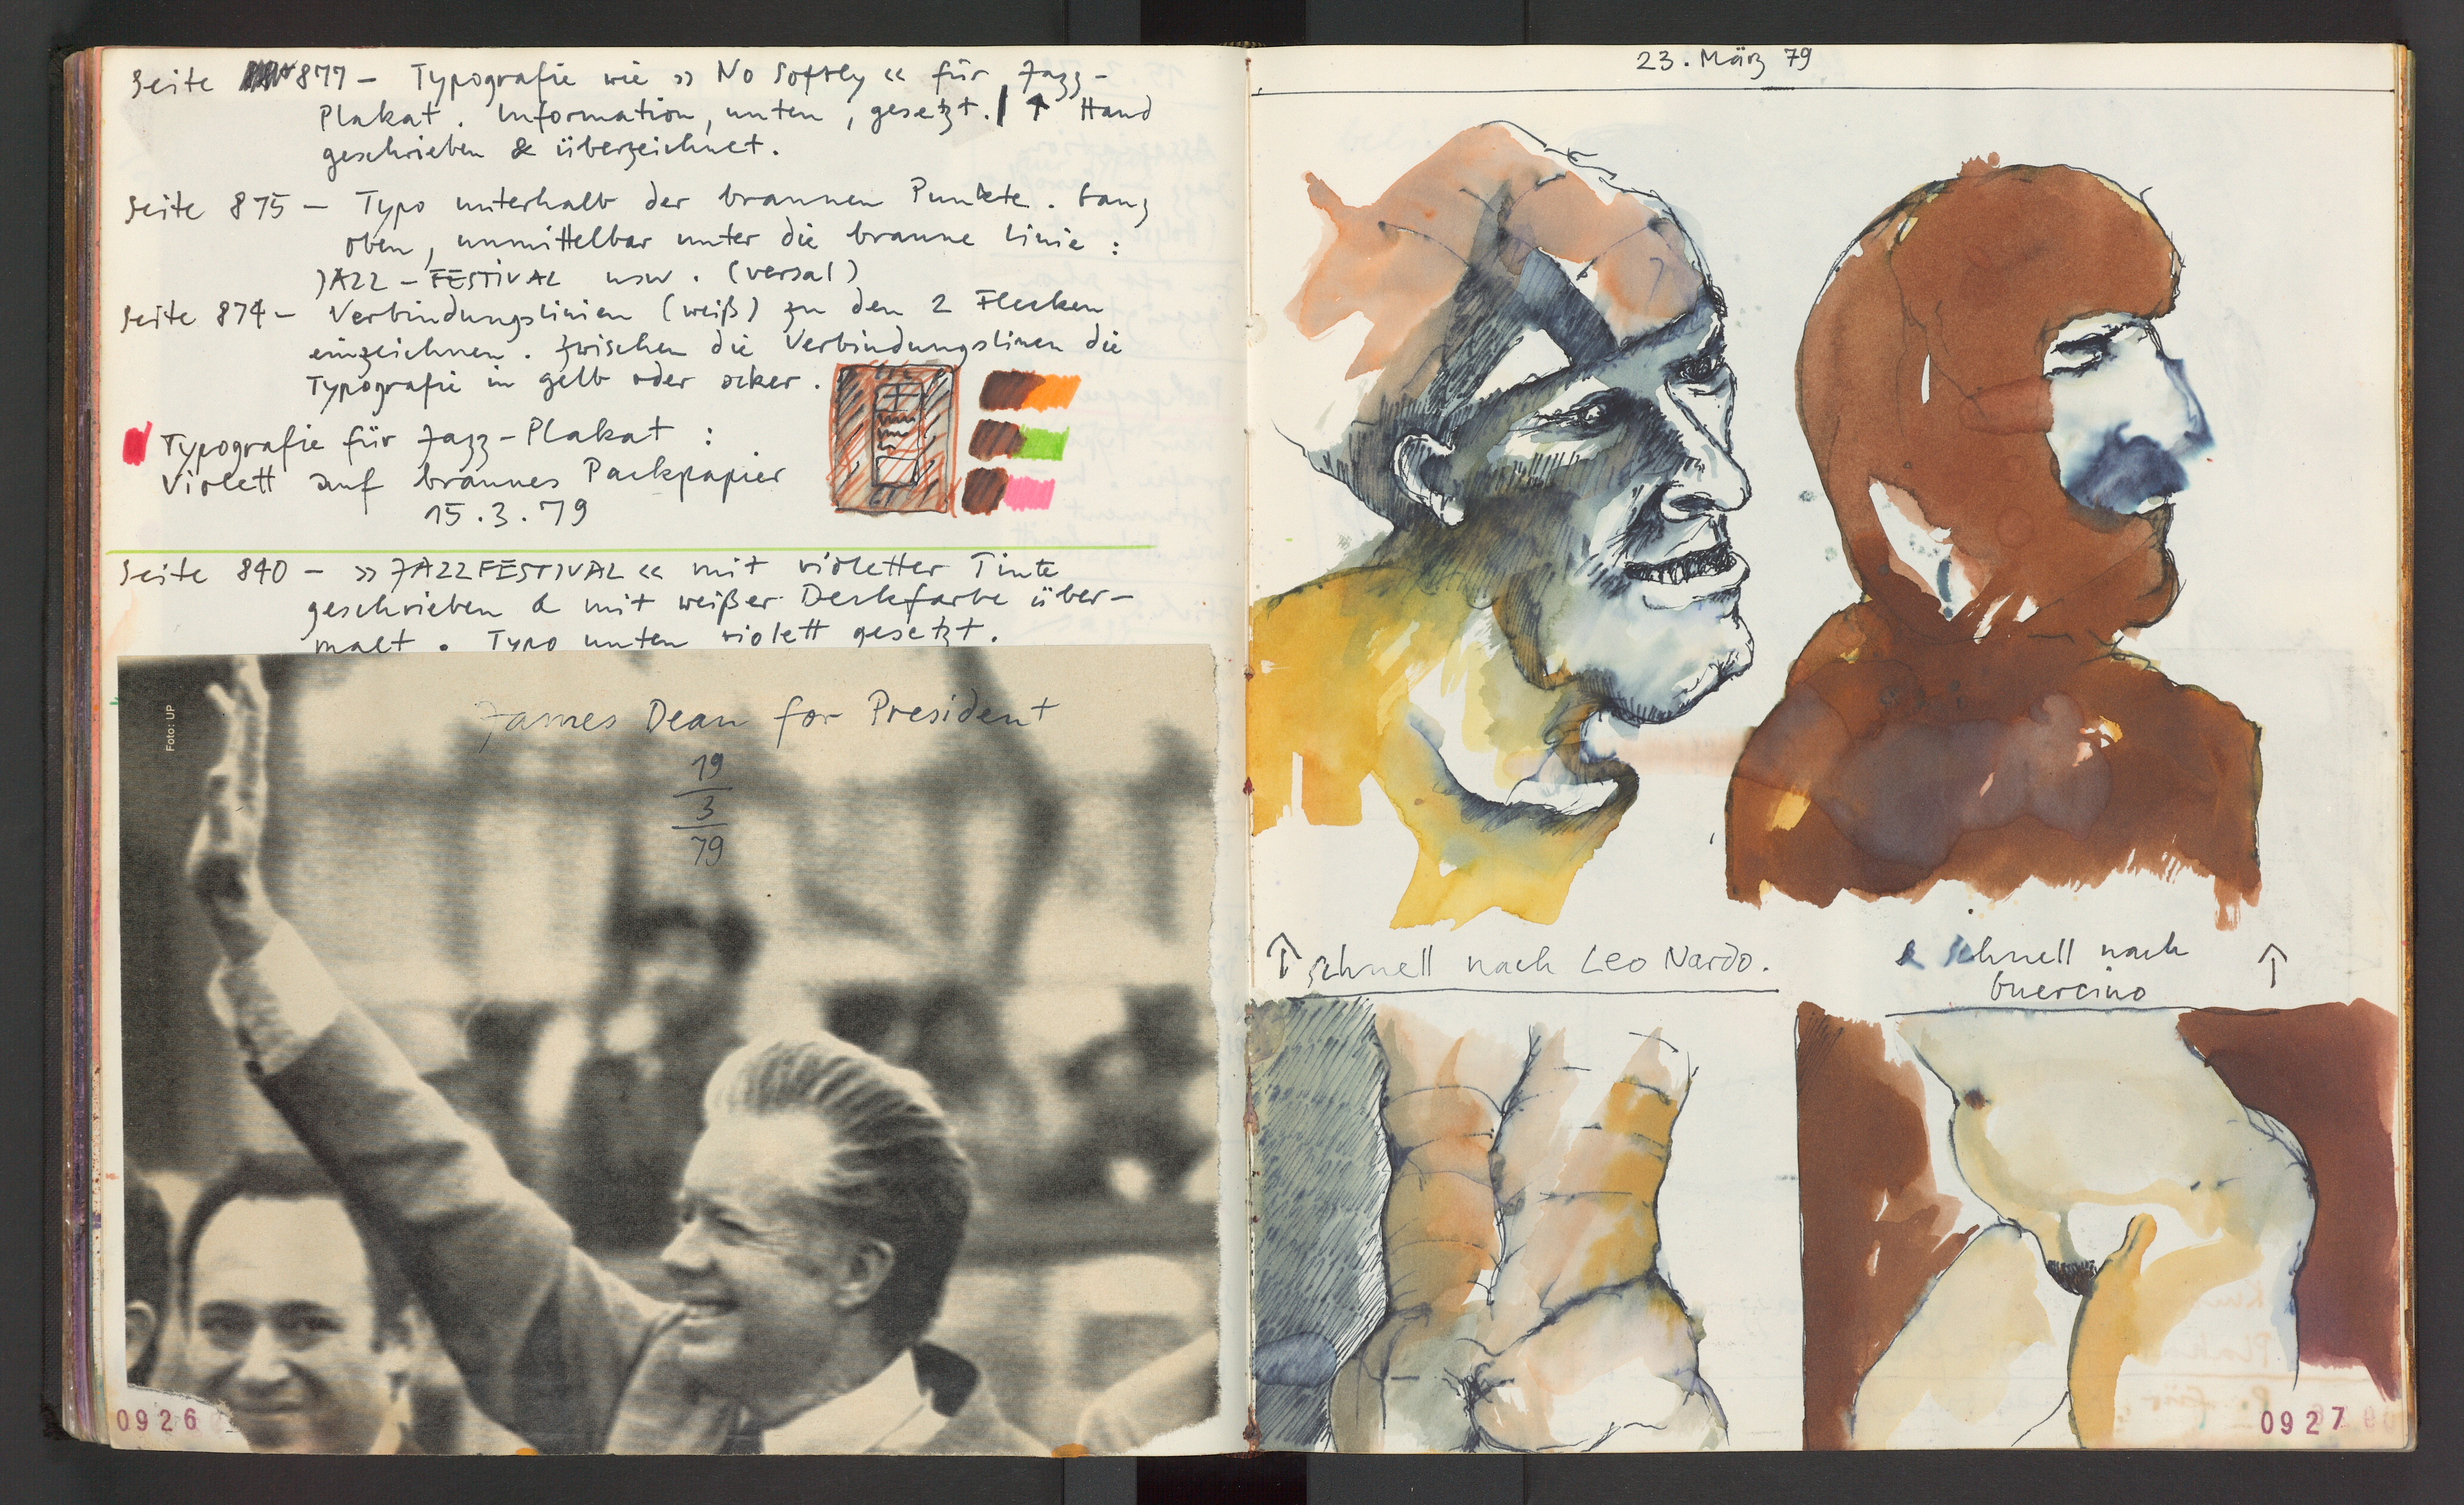 Seite 877 – Typografie wie » No Softly « für Jazz–
Plakat. Information, unten, gesetzt. ↑ Hand
geschrieben & überzeichnet.
Seite 875 – Typo unterhalb der braunen Punkte. Ganz
oben, unmittelbar unter die braune Linie:
JAZZ – FESTIVAL usw. (versal)
Seite 874 – Verbindungslinien (weiß) zu den 2 Flecken
einzeichnen. Zwischen die Verbindungslinien die
Typografie in gelb oder ocker.
Typografie für Jazz – Plakat:
Violett auf braunes Packpapier
15.3.79
Seite 840 – » JAZZFESTIVAL « mit violetter Tinte
geschrieben & mit weißer Deckfarbe über–
malt. Typo unten violett gesetzt.
Foto: UP
James Dean for President
19
3
79
0926
23. März 79
↑ schnell nach Leo Nardo.
& schnell nach ↑
Guercino
0927